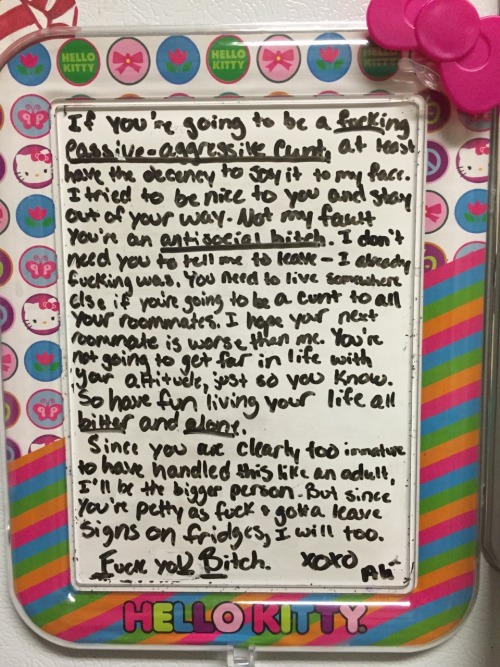 HELLO KITTY
HELLO KITTY
HELLO KITTY
If you're going to be a fucking
passive-aggressive cunt, at least
have the decency to say it to my face.
I tried to be nice to you and stay
out of your way. Not my fault
you're an antisocial bitch. I don't
need you to tell me to leave - I already
fucking was. You need to live somewhere
else if you're going to be a cunt to all
your roommates. I hope your next
roommate is worse than me. You're
not going to get far in life with
your attitude, just so you know.
So have fun living your life all
bitter and alone.
Since you are clearly too immature
to have handled this like an adult,
I'll be the bigger person. But since
you're petty as fuck & gotta leave
signs on fridges, I will too.
Fuck you Bitch. xoxo
HELLO KITTY.